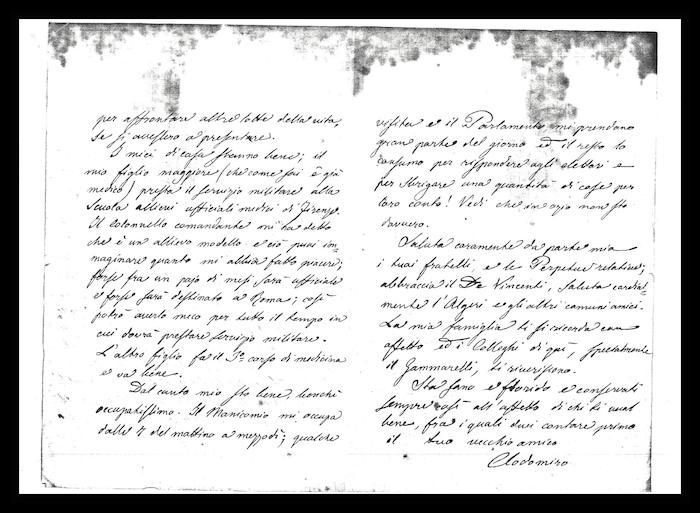 per affrontare altre lotte della vita,
se si avessero a presentare.
I miei di casa stanno bene; il
mio figlio maggiore (che come sai è già
medico) presta il servizio militare alla
Scuola allievi ufficiali medici di Firenze.
Il colonnello comandante mi ha detto
che è un allievo modello e ciò puoi im-
maginare quanto mi abbia fatto piacere;
forse fra un pajo di mesi sarà ufficiale
e forse sarà destinato a Roma; così
potrò averlo meco per tutto il tempo in
cui dovrà prestare servizio militare.
L'altro figlio fa il 3º corso di medicina
e va bene.
Dal canto mio sto bene, benchè
occupatissimo. Il Manicomio mi occupa
dalle 7 del mattino a mezzodì; qualche
visita e il Parlamento mi prendono
gran parte del giorno ed il resto lo
consumo per rispondere agli elettori e
per sbrigare una quantità di cose per
loro conto! Vedi che in ozio non sto
davvero.
Saluta caramente da parte mia
i tuoi fratelli e le Perpetue relative;
abbraccia il De Vincenti, saluta cordial-
mente l'Algeri e gli altri comuni amici.
La mia famiglia ti si ricorda con
affetto ed i Colleghi di quì, specialmente
il Giammarelli, ti riveriscono.
Sta sano e florido e conservati
sempre così all'affetto di chi ti vuol
bene, fra i quali devi contare primo
il tuo vecchio amico
Clodomiro